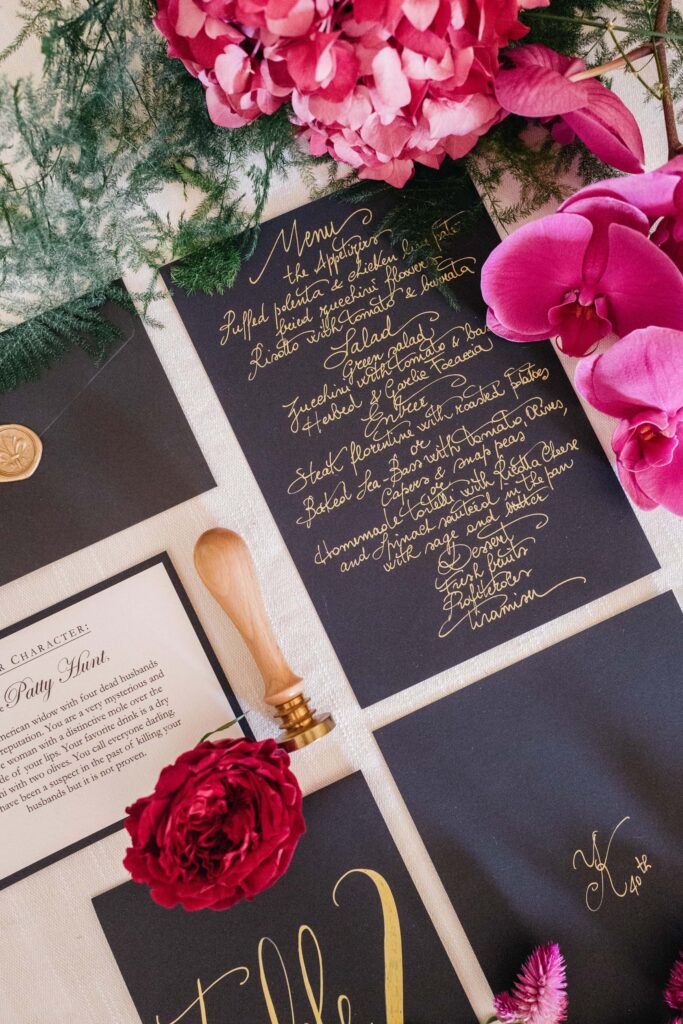 Menu
the Appetizers
Puffed polenta & chicken liver pate
fried zucchini flowers
Risotto with tomato & burrata
Salad
Green salad
Zucchini with tomato & bas
Herbed & Garlic Focaccia
Entree
Steak florentine with roasted potatoes
or
Baked Sea-Bass with tomato, Olives,
Capers & snap peas
or
Homemade tortelli with Ricotta Cheese
and Spinact sauteed in the pan
with sage and butter
Dessert
Fresh fruits
Profiteroles
Tiramisu
R CHARACTER:
Patty Hunt.
merican widow with four dead husbands
reputation. You are a very mysterious and
e woman with a distinctive mole over the
de of your lips. Your favorite drink is a dry
ni with two olives. You call everyone darling.
have been a suspect in the past of killing your
husbands but it is not proven.
YK
40th